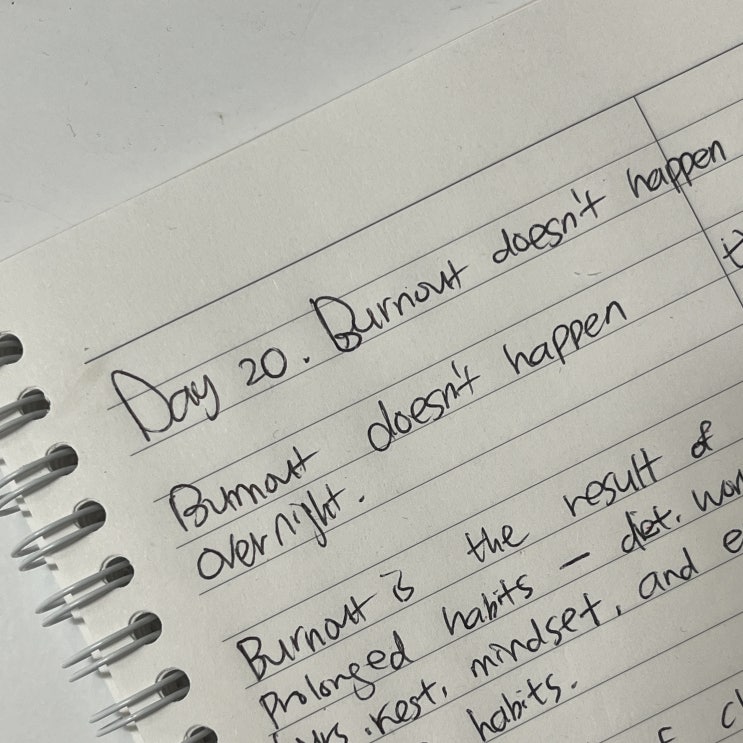 Day 20. Burnout doesn't happen
Burnout doesn't happen
overnight.
Burnout is the result of
Prolonged habits — diet, 
rest, mindset, and
habits.